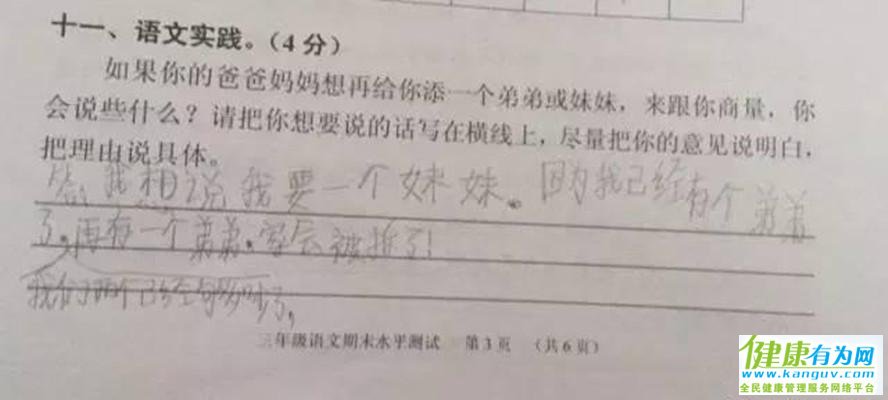 十一、语文实践。（4分）
如果你的爸爸妈妈想再给你添一个弟弟或妹妹，来跟你商量，你
会说些什么？请把你想要说的话写在横线上，尽量把你的意见说明白，
把理由说具体。
答：我相说我要一个妹妹。因为我己经有个弟弟
了。再有一个弟弟。家会被拆了！
我们两个己经句多了。
三年级语文期末水平测试 第3页 （共6页）
健康有为网
www.kanguv.com
全民健康管理服务网络平台